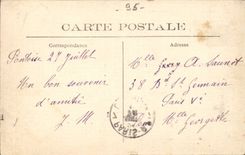 95-
CARTE POSTALE
Correspondance
Adresse
Pontoise 27 Juillet
Un bon souvenir
d'amitié
J. M
Mlle A. Saunot
38 Bd St Germain
Paris Ve
Mlle Georgette